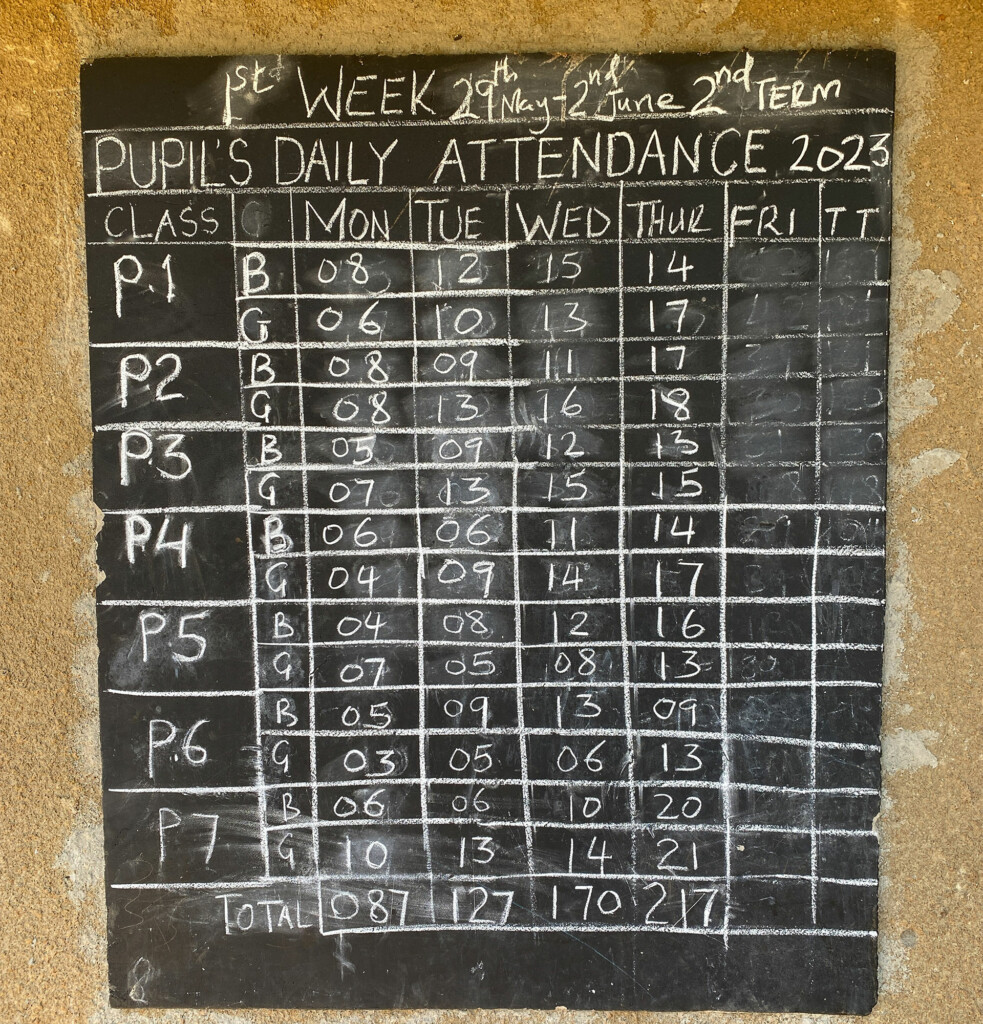 1st WEEK 29th May-2nd June 2nd TERM
PUPIL'S DAILY ATTENDANCE 2023
CLASS G MON TUE WED THUR FRI TT
P.1 B 08 12 15 14
G 06 10 13 17
P.2 B 08 09 11 17
G 08 13 16 18
P.3 B 05 09 12 13
G 07 13 15 15
P.4 B 06 06 11 14
G 04 09 14 17
P5 B 04 08 12 16
G 07 05 08 13
P.6 B 05 09 13 09
G 03 05 06 13
P7 B 06 06 10 20
G 10 13 14 21
TOTAL 087 127 170 217
8